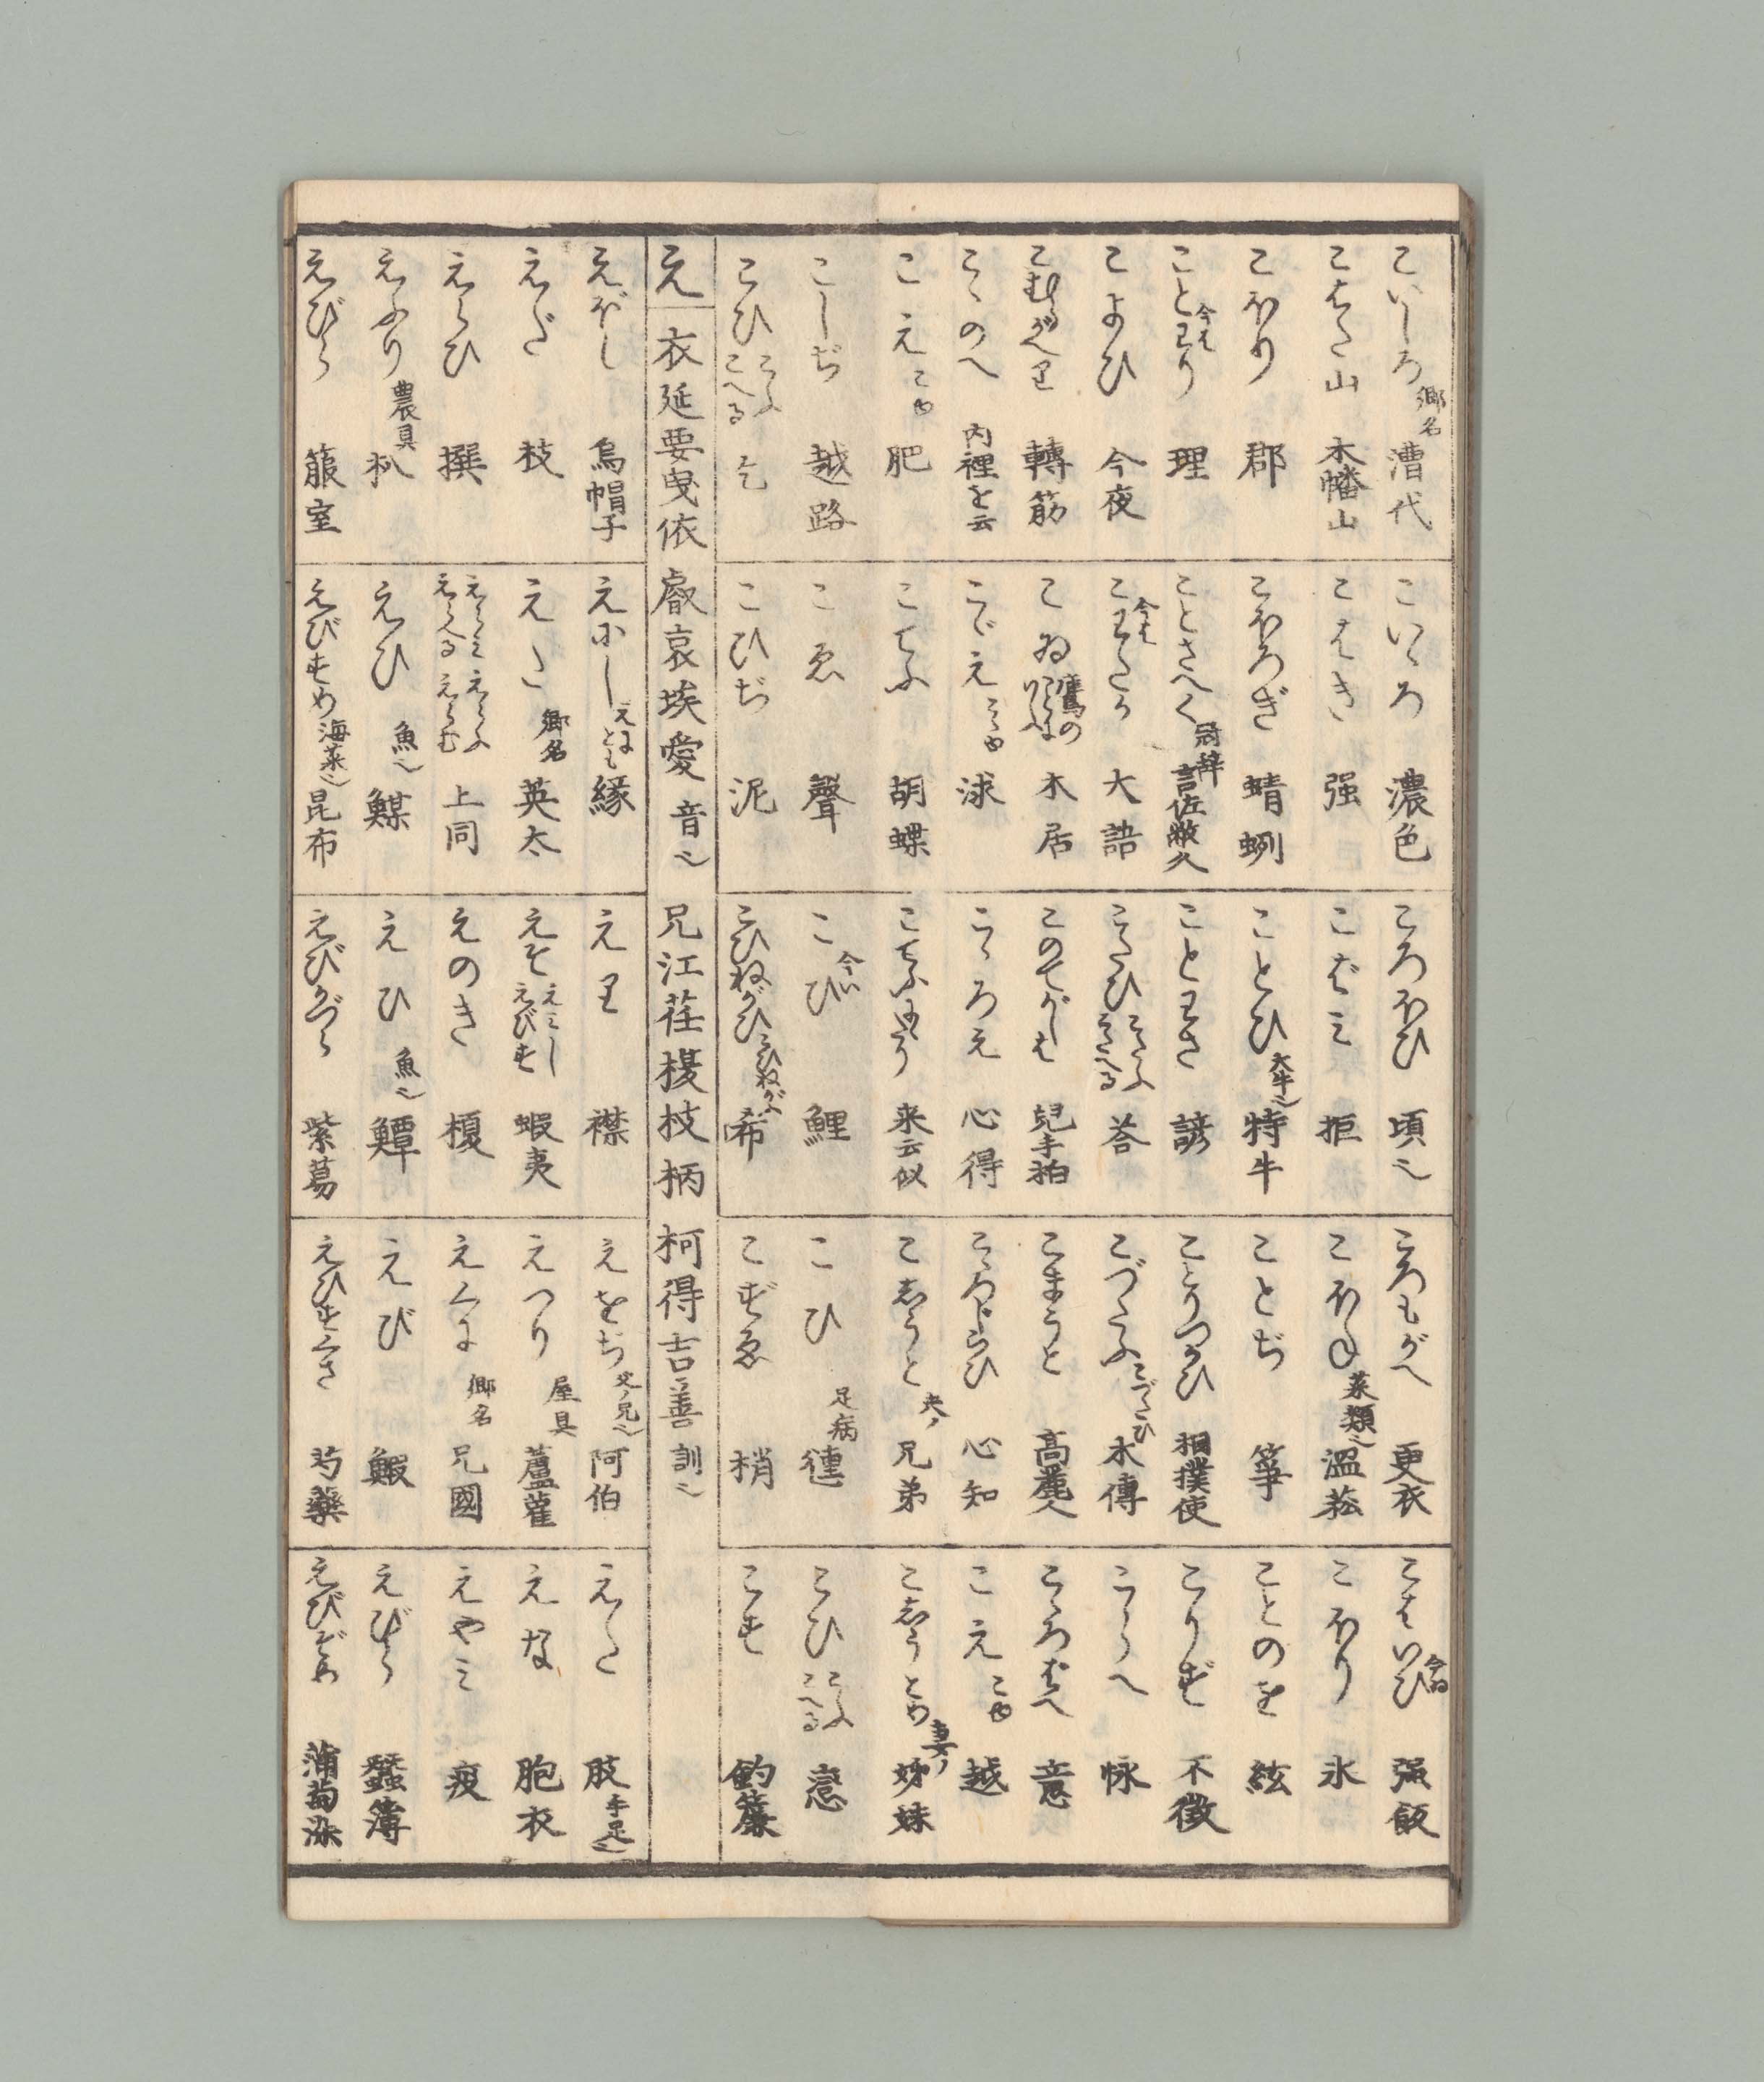 こいしろ 郷名 漕代 こいゝろ 濃色 ころほひ 頃也 ころもがへ 更衣 こはいひ 今ゐ 强飯
こはた山 木幡山 こはき 强 こばミ 拒 こほね 菜類也 溫菘 こほり 氷
こほり 郡 こほろぎ 蜻蛚 ことひ 大牛也 特牛 ことぢ 筝 ことのを 絃
ことわり 今は 理 ことさへく 冠辞 言佐敝久 ことわさ 諺 ことりつかひ 相撲使 こりず 不徴
こよひ 今夜 こわたか 今は 大語 こたひ こたふ こたへる 荅 こづたふ こづたひ 木傳 こらへ 怺
こむらがへり 轉筋 こゐ 鷹の 木居 このてがしは 兒手柏 こまうと 髙麗人 こゝろばへ 意
こゝのへ 内裡を云 こゞえ こゞゆ こゝろえ 心得 こゝろじらひ 心知 こえ こゆ 越
こえ こゆ 肥 こてふ 胡蝶 こてふにたり 来云似 こじうと 夫ノ 兄弟 こじうとめ 妻ノ 姊妹
こしぢ 越路 こゑ 聲 こひ 今い 鯉 こひ 足病 こひ こふ こへる 戀
こひ こふ こへる 乞 こひぢ 泥 こひねがひ こひねがふ 希 こずゑ 梢 こす 鈎簾
え 衣延要曳依 叡哀埃愛 音也 兄江荏榎枝柄 柯得吉善 訓也
えぼし 烏帽子 えにし えにとも 縁 えり 襟 えをぢ 父ノ兄也 阿伯 えだ 肢 手足也
えだ 枝 えた 郷名 英太 えぞ えミし えびす 蝦夷 えつり 屋具 蘆雚 えな 胞衣
えらひ 撰 えらミ えらふ えらへる えらむ 上同 えのき 榎 えくに 郷名 兄國 えやミ 疫
えふり 農具 朳 えひ 魚也 えひ 魚也 えび 鰕 えびら 蠶簿
えびら 箙室 えびすめ 海菜也 昆布 えびかづら 紫葛 えひすくさ 芍藥 えびぞめ 蒲萄染